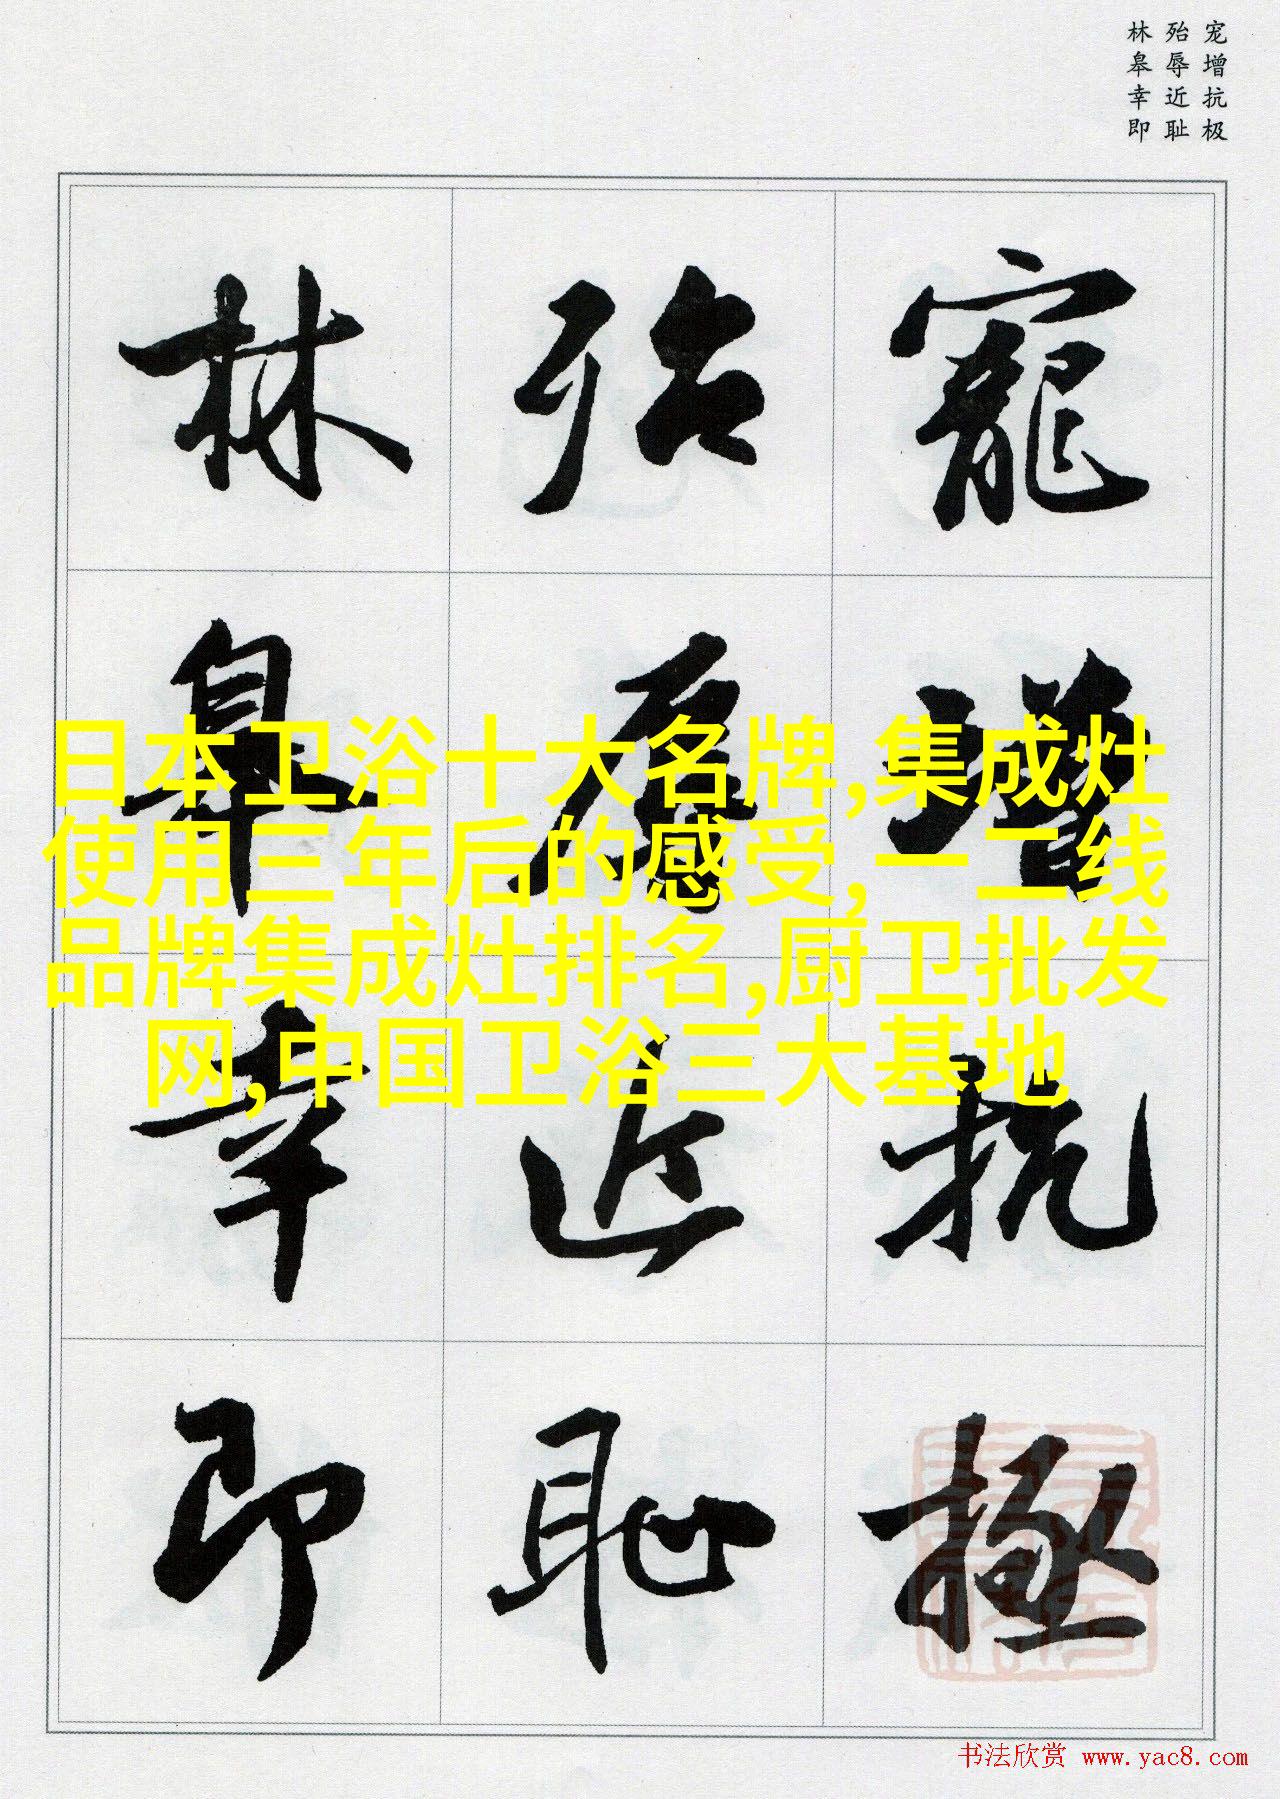 宠增抗极
殆辱近耻
林皋幸即
寵增抗極
殆辱近恥
林皋幸即
日本卫浴十大名牌,集成灶
使用三年后的感受,一二线
品牌集成灶排名,厨卫批发
网,中国卫浴三大基地
书法欣赏 www.yac8.com